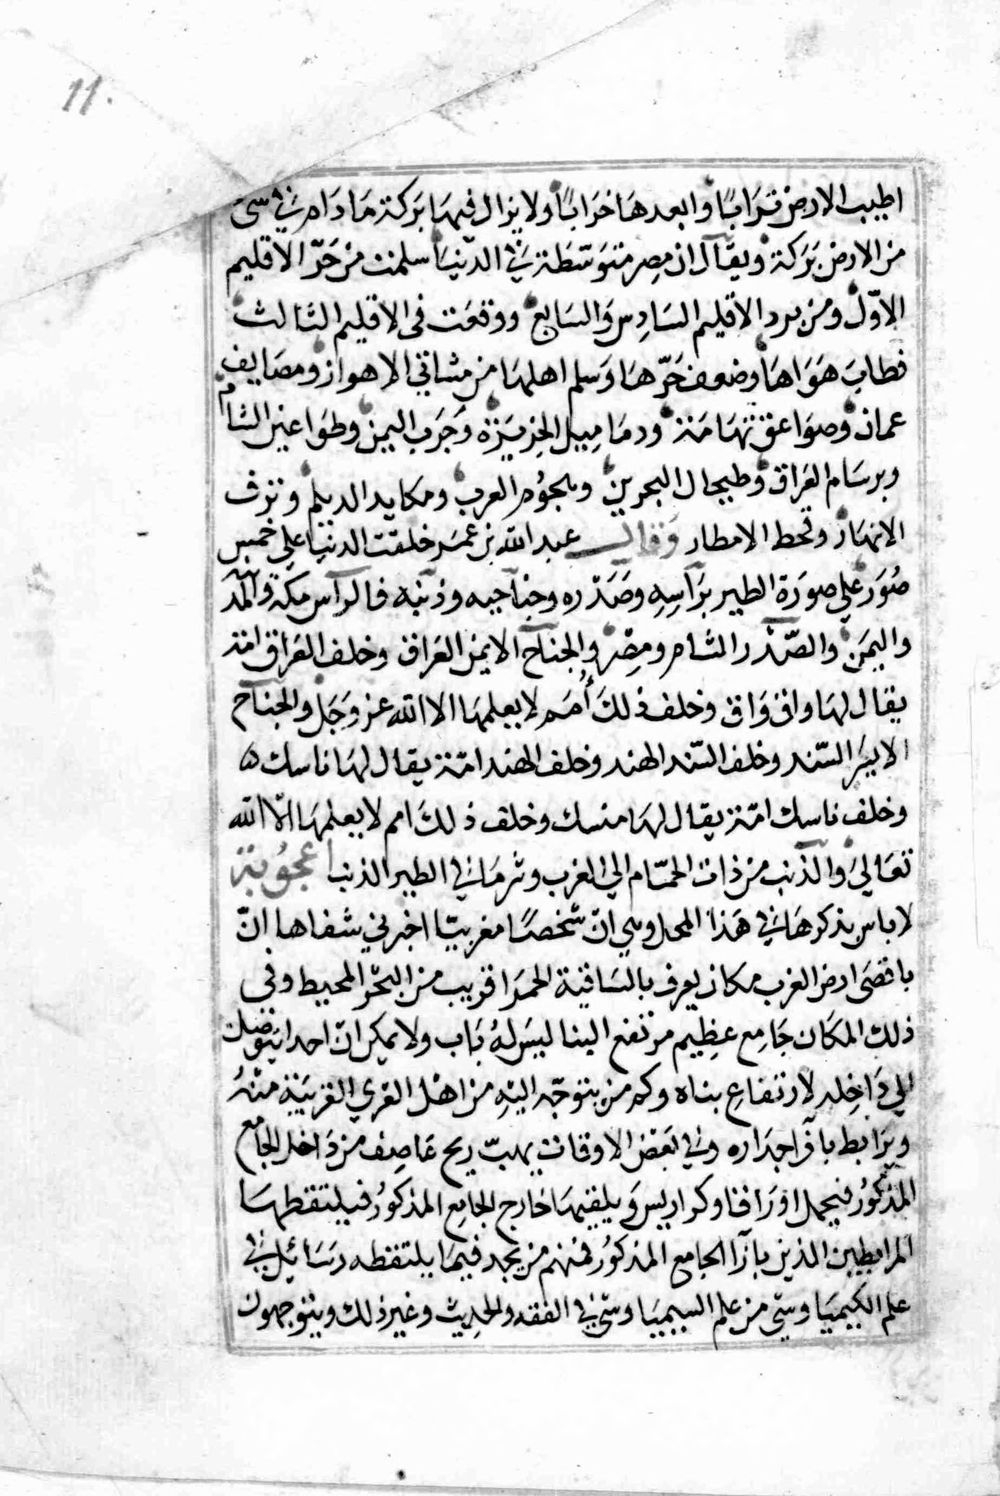 11.
اطيب الارض ترابًا وابعدها خرابًا ولا يزال فيها بركة ما دام في شئ
من الارض بركة ويقال ان مصر متوسطة في الدنيا سلمت من حرّ الاقليم
الاوّل ومن برد الاقليم السادس والسابع ووقعت فى الاقليم الثالث
فطاب هواها وضعف حرّها وسلم اهلها من مشاتي الاهواز ومصايف
عمان وصواعق تهامة ودماميل الجزيزة وجرب اليمن وطواعين الشام
وبرسام العراق وطيحال البحرين ومكايد الديلم ونزف
الانهار وقحط الامطار وقال عبد الله بن عمر خلقت الدنيا على خمس
صور على صورة الطير براسه وصدره وجناحيه وذنبه فالراس مكة والمد
واليمن والصدر الشام ومصر والجناح الايمن العراق وخلف العراق امة
يقال لها واق واق وخلف ذلك أمم لا يعلمها الا الله عز وجل والجناح
الايسر السّند وخلف السّند الهند وخلف الهند امّة يقال لها ناسك
وخلف ناسك امّة يقال لها منسك وخلف ذلك امم لا يعلمها الّا الله
تعالي والذنب من ذات الحمام الي الغرب وشر ما في الطير الذنب اعجوبة
لا باس بذكرها في هذا المحل وهي انّ شخصًا مغربيّا اخبرني شفاها انّ
باقصى ارض الغرب مكان يعرف بالساقية الحمرا قريب من البحر المحيط وفي
ذلك المكان جامع عظيم مرتفع البنا ليس له باب ولا يمكن انّ احدا يتوصل
الي داخله لارتفاع بناه وكم من يتوجّه اليه من اهل القري القريبة منه
ويرابط بازا جداره وفي بعض الاوقات يهبّ ريح عاصف من داخل الجامع
المذكور فيحمل اوراقا وكراريس ويلقيها خارج الجامع المذكور فيلتقطها
المرابطين الذين بازا الجامع المذكور فمنهم من يجد فيما يلتقطه رسائل في
علم الكيميا وشي من علم السيميا وشي في الفقه والحديث وغير ذلك ويتوجهون